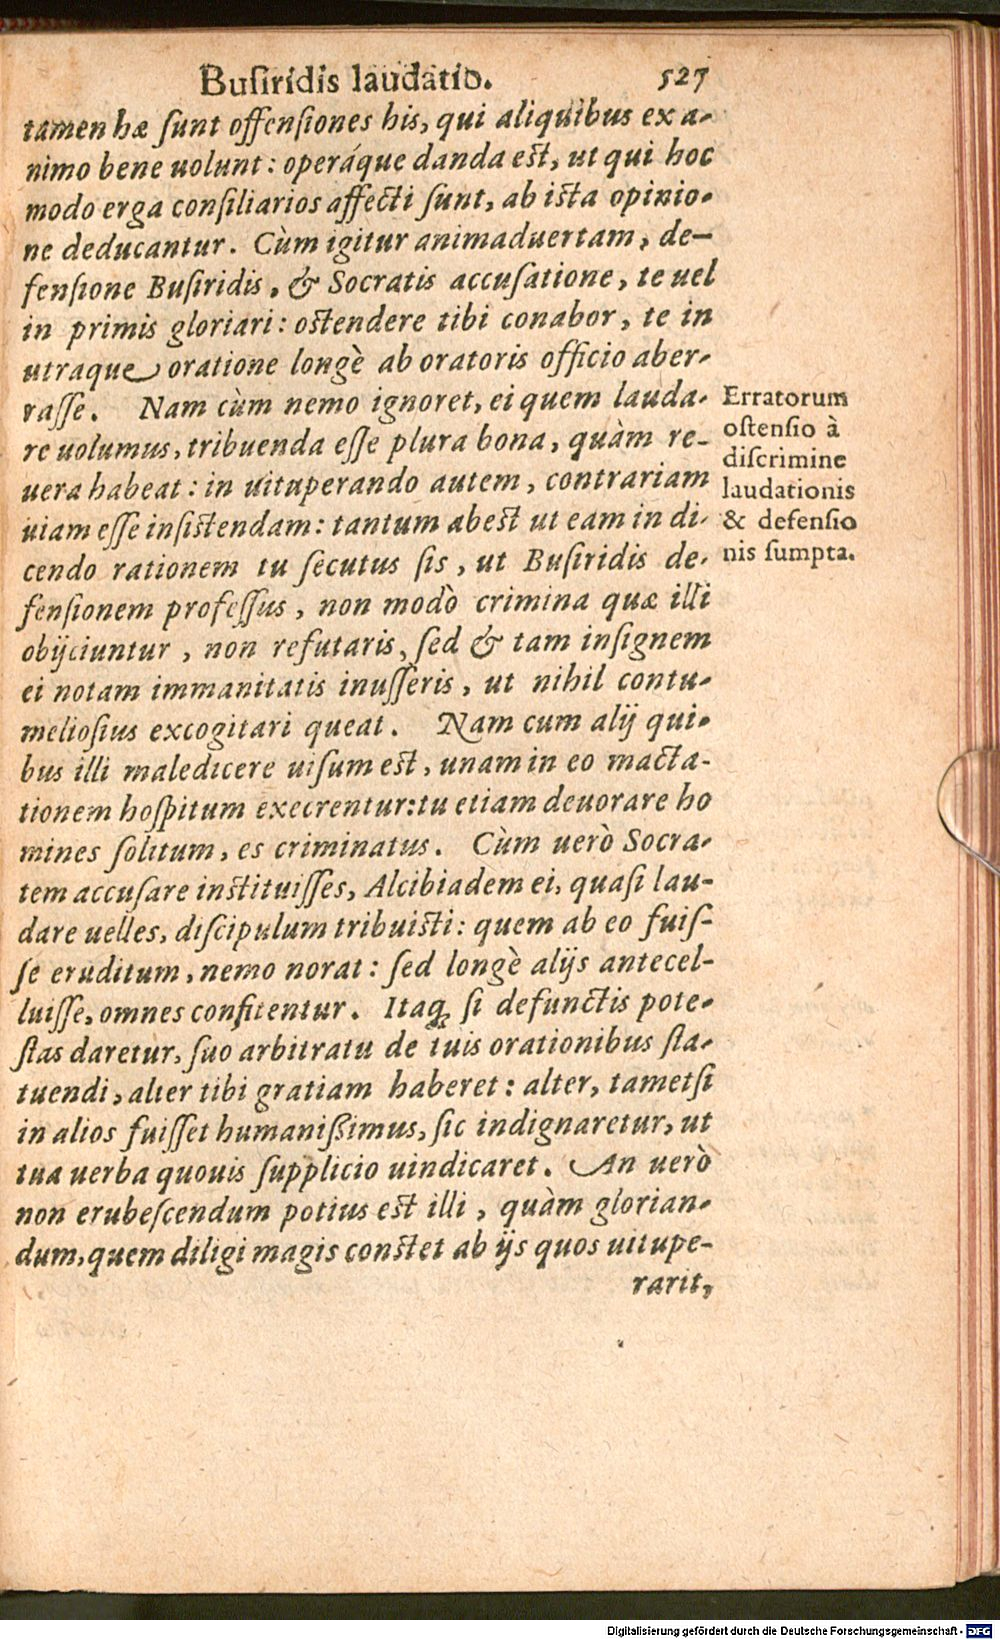 Buſiridis laudatio. 527
tamen hæ ſunt offenſiones his, qui aliquibus ex a-
nimo bene uolunt: operáque danda est, ut qui hoc
modo erga conſiliarios affecti ſunt, ab ista opinio-
ne deducantur. Cùm igitur animaduertam, de-
fenſione Buſiridis, & Socratis accuſatione, te uel
in primis gloriari: ostendere tibi conabor, te in
utraque oratione longè ab oratoris officio aber-
raſſe. Nam cùm nemo ignoret, ei quem lauda-
re uolumus, tribuenda eſſe plura bona, quàm re-
uera habeat: in uituperando autem, contrariam
uiam eſſe inſistendam: tantum abest ut eam in di-
cendo rationem tu ſecutus ſis, ut Buſiridis de-
fenſionem profeſſus, non modò crimina quæ illi
obijciuntur, non refutaris, ſed & tam inſignem
ei notam immanitatis inuſſeris, ut nihil contu-
melioſius excogitari queat. Nam cum alij qui-
bus illi maledicere uiſum est, unam in eo macta-
tionem hoſpitum execrentur: tu etiam deuorare ho
mines ſolitum, es criminatus. Cùm uerò Socra-
tem accuſare instituiſſes, Alcibiadem ei, quaſi lau-
dare uelles, diſcipulum tribuisti: quem ab eo fuiſ-
ſe eruditum, nemo norat: ſed longè alijs antecel-
luiſſe, omnes confitentur. Itaq; ſi defunctis pote-
ſtas daretur, ſuo arbitratu de tuis orationibus ſta-
tuendi, alter tibi gratiam haberet: alter, tametſi
in alios fuiſſet humanißimus, ſic indignaretur, ut
tua uerba quouis ſupplicio uindicaret. An uerò
non erubeſcendum potius est illi, quàm glorian-
dum, quem diligi magis constet ab ijs quos uitupe-
rarit,
Erratorum
oſtenſio à
diſcrimine
laudationis
& defenſio
nis ſumpta.
Digitalisierung gefördert durch die Deutsche Forschungsgemeinschaft - DFG